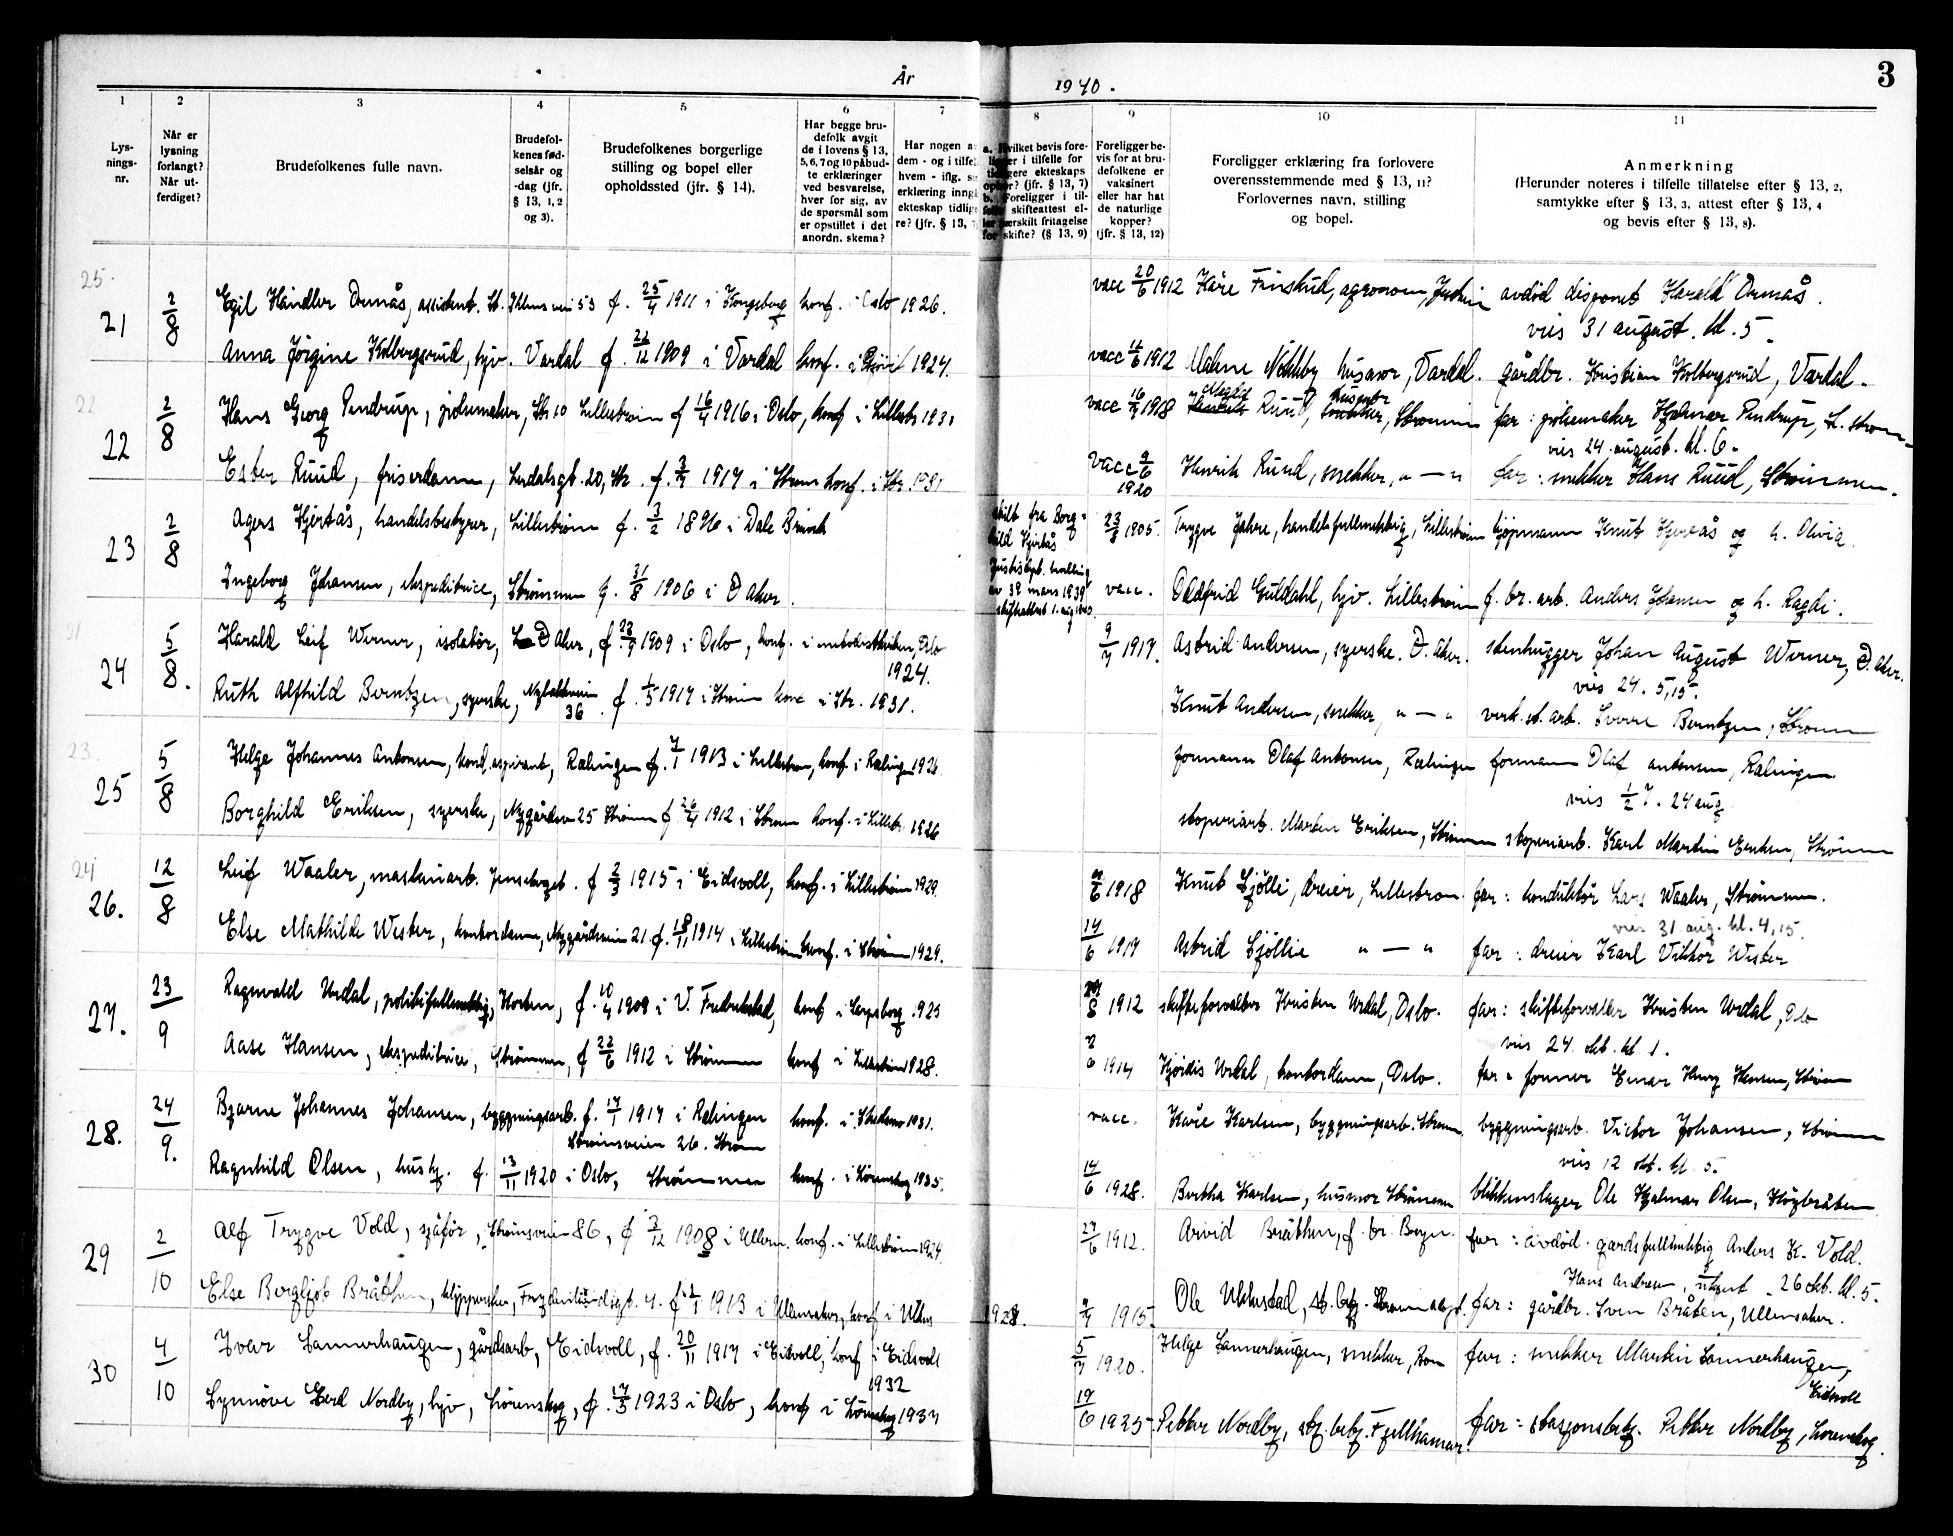 År
1940.
3
1
2
3
4
5
6
7
8
9
10
11
Lys-
nings-
nr.
Når er
lysning
forlangt?
Når ut-
ferdiget?
Brudefolkenes fulle navn.
Brudefol-
kenes fød-
selsår og
-dag (jfr.
§ 13, 1, 2
og 3).
Brudefolkenes borgerlige
stilling og bopel eller
opholdssted (jfr. § 14).
Har begge bru-
defolk avgit
de i lovens § 13,
5, 6, 7 og 10 påbud-
te erklæringer
ved besvarelse,
hver for sig, av
de spørsmål som
er opstillet i det
anordn. skema?
Har nogen a
dem - og i tilfel
hvem - iflg. s
erklæring inngå
ekteskap tidlige
re? (jfr. § 13,
a. Hvilket bevis fore-
ligger i tilfelle for
tidligere ekteskaps
ophør? (jfr. § 13, 7)
b. Foreligger i til-
felle skifteattest el-
ler særskilt fritagelse
for skifte? (§ 13, 9)
Foreligger be-
vis for at bru-
defolkene er
vaksinert
eller har hat
de naturlige
kopper?
(jfr. § 13, 12)
Foreligger erklæring fra forlovere
overensstemmende med § 13, 11?
Forlovernes navn, stilling
og bopel.
Anmerkning
(Herunder noteres i tilfelle tillatelse efter § 13, 2,
samtykke efter § 13, 3, attest efter § 13, 4
og bevis efter § 13, 8).
25.
21 2/8 Egil Händler Ormås, assistent. St. Olavs vei 53 f. 25/4 1911 i Kongsberg konf. i Oslo 1926. vacc 20/6 1912 Kåre Finstud, agronom, avdød disponent Harald Ormås.
vies 31 august. kl. 5.
Anna Jørgine Kolbergsrud, hjv. Vardal f. 1909 i Vardal konf. i Gjøvik 1924. vacc 1912 Malene Nökleby husmor, Vardal. gårdbr. Kristian Kolbergsrud, Vardal.
22
22 2/8 Hans Georg Pindrup, pølsemaker, Str 10 Lillestrøm f 16/4 1916 i Oslo, konf i Lillestr. 1931 vacc 1918 Magda Ruud, husmor, Strømmen far: pølsemaker Hjalmar Pindrup, L. strøm-
vies 24. august. kl. 6.
Ester Ruud, friserdame, Lerdalsgt. 20, Str. f. 1917 i Strøm konf. i Str. 1931 vacc 9/6 1920 Henrik Ruud, snekker, " — " far: snekker Hans Ruud, Strømmen.
23 2/8 Hjertås, handelsbestyrer, Lillestrøm f. 3/2 1896 i Dale Bruvik
skilt fra Borg-
hild Hjertås
1905. Trygve Jahre, handelsfullmektig, Lillestrøm kjøpmann Knut Hjertås og h. Olivia.
Ingeborg Johansen, ekspeditrice, Strømmen f. 31/8 1906 i Ø Aker. vacc. Oddfrid Guldahl, hjv. Lillestrøm f. br. arb. Anders Johansen og h. Ragdi.
21
24 5/8. Harald Leif Werner, isolatør, Ø Aker, f. 1909 i Oslo, konf. i metodistkirken, Oslo
1924.
9/7 1917. Astrid Andersen, syerske. Ø. Aker. stenhugger Johan August Werner, Ø. Aker.
vies 24. 5,15.
Ruth Alfhild Berntzen, syerske, 36 f. 1/5 1917 i Strøm konf i Str. 1931. Knut Andersen, snekker, " — " verkst. arb. Sverre Berntzen, Strøm
23
25 5/8 Helge Johannes Antonsen, kond. aspirant, Rælingen f. 7/1 1913 i Lillestrøm, konf. i Rælingen 1928 formann Olaf Antonsen, Rælingen formann Olaf Antonsen, Rælingen
vies 1/2 7. 24 aug
Borghild Eriksen, syerske, Nygårdsv 25 Strøm f 26/4 1912 i Strøm konf. i Lillestr. 1926 støperiarb. Martin Eriksen, Strømm støperiarb. Karl Martin Eriksen, Strømm
24
26. 12/8 Leif Waaler, maskinarb. f 2/3 1915 i Eidsvoll, konf. i Lillestrøm 1929. 1918 Knut Gjølli, dreier, Lillestrøm. far: konduktør Lars Waaler, Strømmen.
vies 31 aug. kl. 4,15.
Else Mathilde Wister, kontordame, Nygårdsveien 21 f. 18/11 1914 i Lillestrøm konf. i Strøm 1929. 14/6 1917 Astrid Gjöllie " — " far: dreier Karl Viktor Wister
27. 23/9 Ragnvald Urdal, politifullmektig, Horten, f. 10/4 1908 i V. Fredrikstad, konf i Sarpsborg 1923 1912 skifteforvalter Kristen Urdal, Oslo. far: skifteforvalter Kristen Urdal, Oslo
vies 24. okt. kl 1.
Aase Hansen, ekspeditrice, Strømmen, f 22/6 1912 i Strømmen konf i Lillestrøm 1928. 1914 Hjördis Urdal, kontordame, Oslo. far: former Einar Hansen, Strøm
28. 24/9. Bjarne Johannes Johansen, bygningsarb. f. 17/1 1917 i Rælingen konf. i 1931. vacc. Kåre Karlsen, bygningsarb. Strøm. bygningsarb. Victor Johansen, Strømm
Strømsveien 26. Strøm
vies 12 okt. kl 5.
Ragnhild Olsen, hush. f. 13/11 1920 i Oslo, Strømmen konf. i Lørenskog 1935. 14/6 1928. Bertha Karlsen, husmor Strømmen blikkenslager Ole Hjalmar Olsen, Høybråten
29 2/10 Alf Trygve Vold, sjåfør, Strømsveien 86, f 3/12 1908 i Ullern. konf. i Lillestrøm 1924. 27/6 1912. Arvid Bråthen, f. br. Bergn. far: avdød. gårdsfullmektig Anders K. Vold.
26 okt. kl. 5.
Else Bergljot Bråthen, klipperske, Frydenlundsgt. 4. f. 1913 i Ullensaker, konf i Ullens 1928. 1915. Ole Ukkestad, far: gårdbr. Sven Bråten, Ullensaker.
30 4/10 Ivar Sannerhaugen, gårdsarb, Eidsvoll, f. 20/11 1917 i Eidsvoll, konf i Eidsvoll
1932
5/7 1920. Helge Sannerhaugen, snekker, far: snekker Martin Sannerhaugen,
Eidsvoll
Synnöve Gerd Nordby, hjv, Lørenskog, f. 17/5 1923 i Oslo, konf i Lørenskog 1937 19/6 1925. Petter Nordby, stj. betj. Fjellhamar. far: stasjonsbetj. Petter Nordby, Lørenskog.